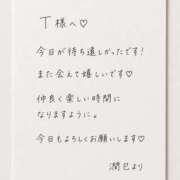 T様へ♡
今日が待ち遠しかったです!
また会えて嬉しいです♡
仲良く楽しい時間に
なりますように。
今日もよろしくお願いします♡
潤巳より